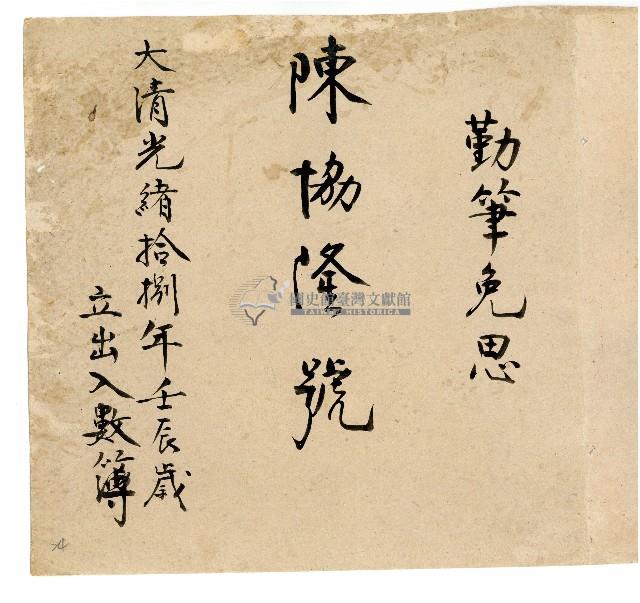 勤筆免思
陳協隆號
大清光緒拾捌年壬辰歲
立出入數簿
國史館臺灣文獻館
TAIWAN HISTORICA